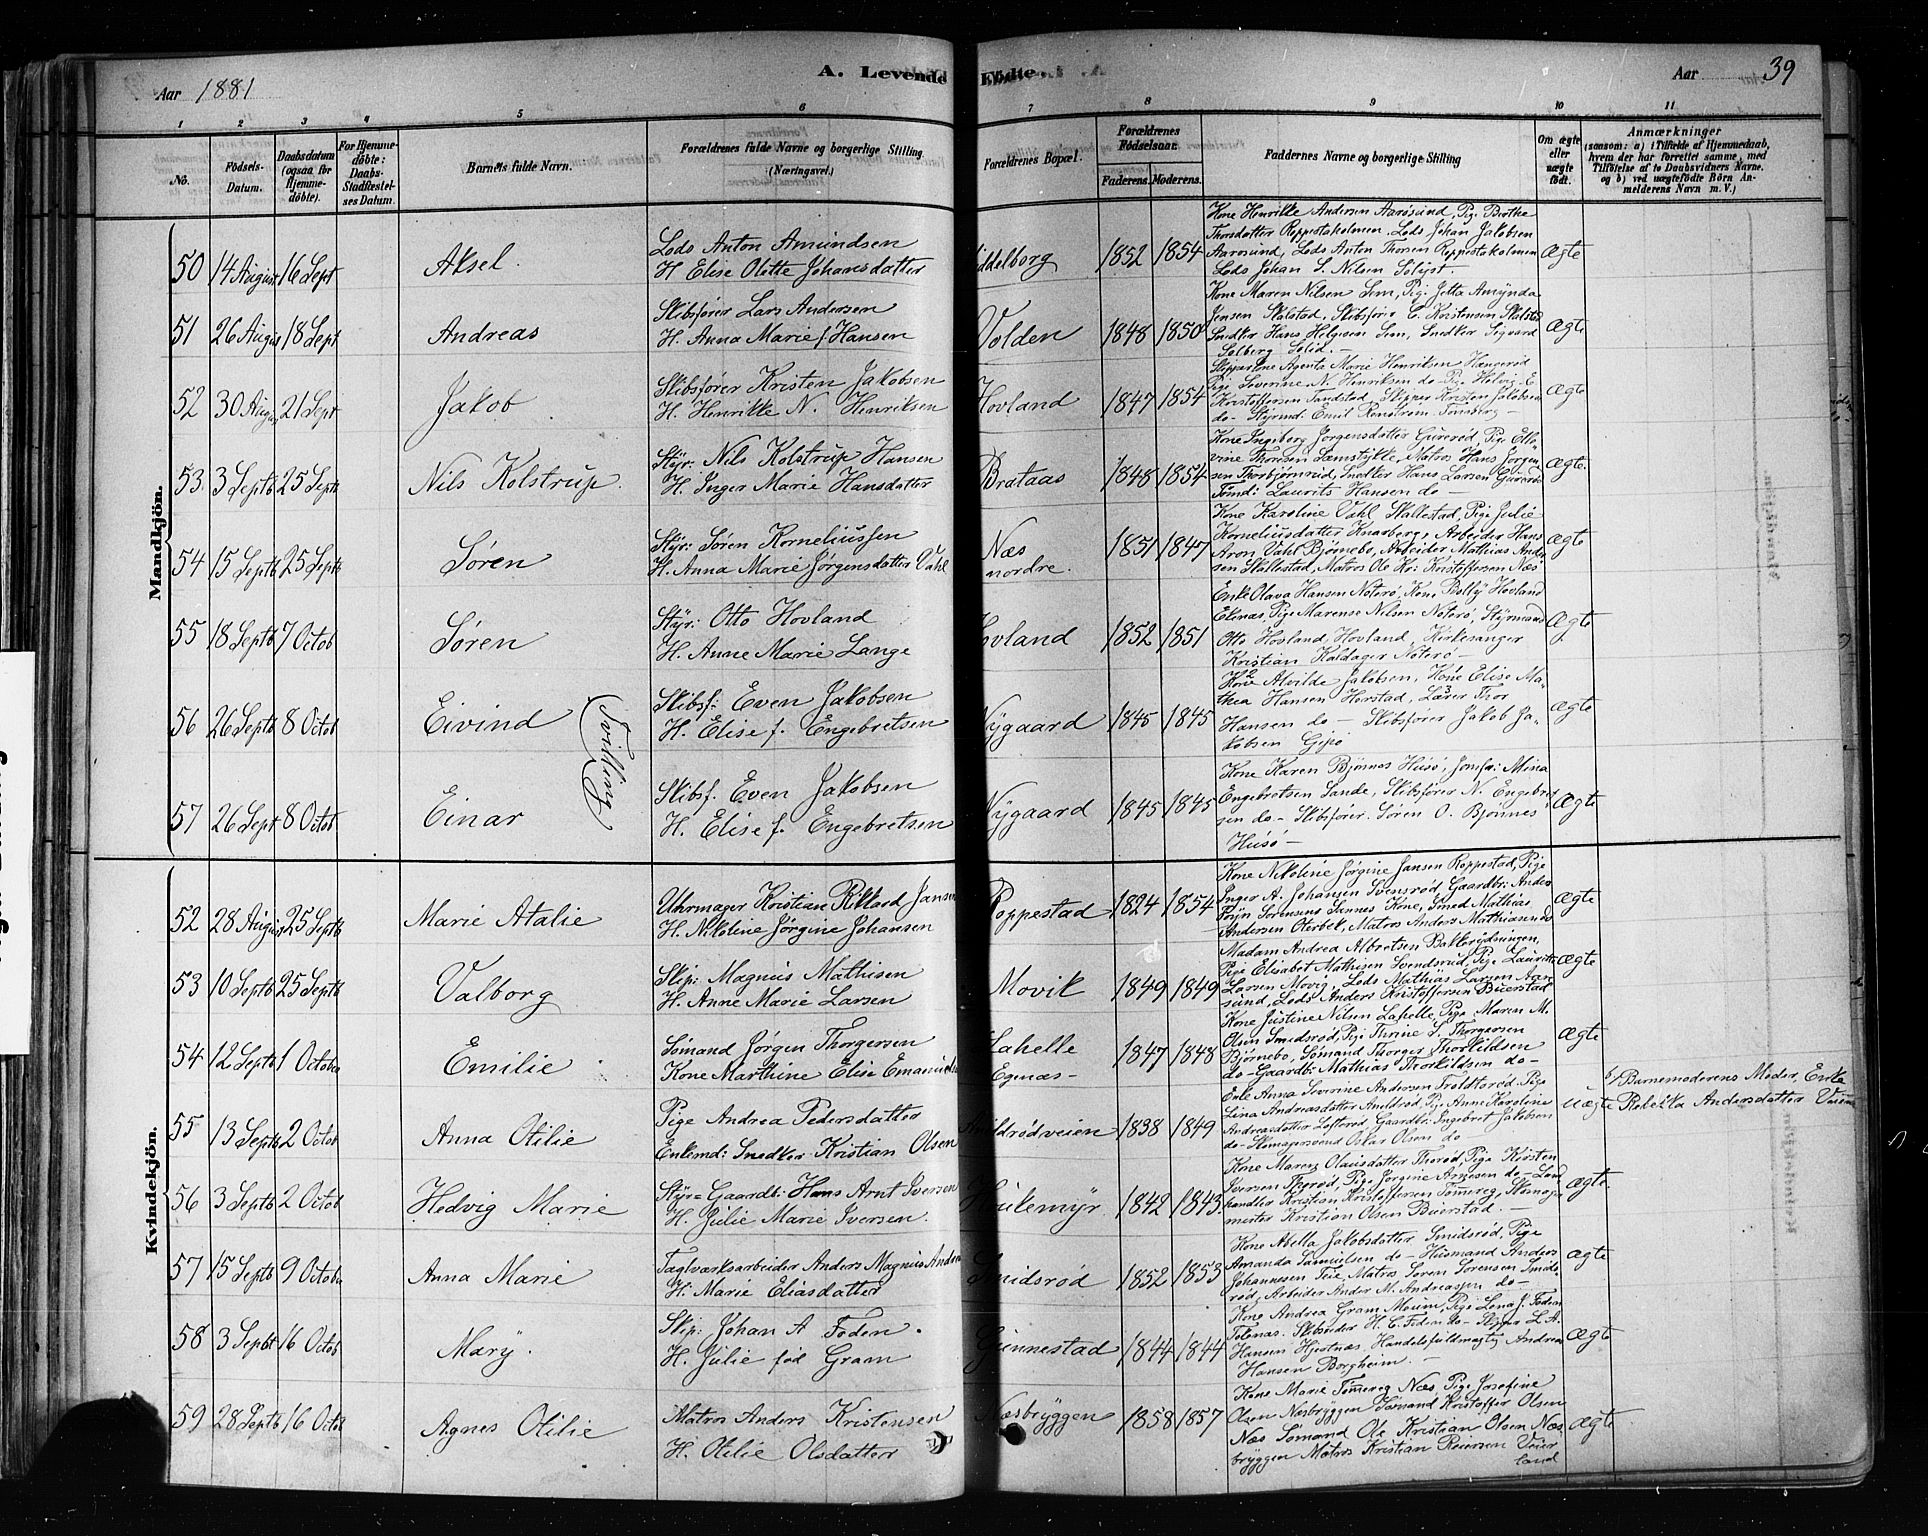 Aar 1881
A. Levende Födte.
Aar 39
1 2 3 4 5 6 7 8 9 10 11
No.
Födsels-Datum.
Daabsdatum (ogsaa for Hjemmedöbte).
For Hjemmedöbte: Daabs-Stadfæstelses Datum.
Barnets fulde Navn.
Forældrenes fulde Navne og borgerlige Stilling. (Næringsvei.)
Forældrenes Bopæl.
Forældrenes Födselsaar.
Faderens. Moderens.
Faddernes Navne og borgerlige Stilling
Om ægte eller uægte födt.
Anmærkninger (saasom: a) i Tilfælde af Hjemmedaab, hvem der har forrettet samme, med Tilföielse af to Daabsvidners Navne. og b) ved uægtefödte Börn Anmelderens Navn m. V.)
Mandkjön.
50 14 August 16 Sept Aksel. Lods Anton Amundsen
H. Elise Olette Johansdatter
1852 1854
Kone Henrikke Andersen Aarøsund, Pige Berthe
Thorsdatter Roppestaholmen, Lods Johan Jakobsen
Aarøsund, Lods Anton Thorsen Roppestaholmen
Lods Johan S. Nilsen Sølyst.
Ægte
51 26 August 18 Sept Andreas Skibsfører Lars Andersen
H. Anna Marie f. Hansen
Volden 1848 1850
Kone Maren Nilsen Sem, Pige Jetta Amynda
Jensen Skalstad, Skibsfører C. Kristensen Skalstad
Snedker Hans Helgesen Sem, Snedker Sigvard
Solberg Solid. —
Ægte
52 30 August 21 Sept Jakob Skibsfører Kristen Jakobsen
H. Henrikke N. Henriksen
Hovland 1847 1854
Agente Marie Henriksen Hængerød
Pige Severine N. Henriksen do- Pige Helvig E
Kristoffersen Sandstad, Skipper Kristen Jakobsen
do- Styrmd: Emil Tønsberg —
Ægte
53 3 Septb 25 Septb Nils Kolstrup. Styr: Nils Kolstrup Hansen
H. Inger Marie Hansdatter
Brataas 1848 1854
Kone Ingeborg Jørgensdatter Gurerød, Pige Otto
vine Thoresen Lemstykke, Matros Hans Jørgen
sen Thorbjørnrød, Snedker Hans Larsen Gurerød
Tømd: Laurits Hansen do —
Ægte.
54 15 Septb 25 Septb Søren Styr: Søren Korneliussen
H. Anna Marie Jørgensdatter Vahl
Næs nordre. 1851 1847
Kone Karoline Vahl Skallestad, Pige Julie
Korneliusdatter Knarberg, Arbeider Hans
Aron Vahl Bjørnebo, Arbeider Mathias Ander
sen Skallestad, Matros Ole Kr: Kristoffersen Næs
Ægte
55 18 Septb 7 Octob Søren Styr: Otto Hovland
H. Anne Marie Lange
Hovland 1852 1851
Enke Olava Hansen Noterø, Kone Hovland
Ekenæs, Pige Marense Nilsen Noterø, Styrmand
Otto Hovland, Hovland, Kirkesanger
Kristian Kaldager Noterø —
Ægte
56 26 Septb 8 Octob Eivind (Tvilling) Skibsf: Even Jakobsen
H. Elise f. Engebretsen
Nygaard 1845 1845
Kone Alvilde Jakobsen, Kone Elise Ma-
thea Hansen Herstad, Lærer Thor
Hansen do — Skibsfører Jakob Ja-
kobsen Gipø
Ægte
57 26 Sept 8 Octob Einar Skibsf. Even Jakobsen
H. Elise f. Engebretsen
Nygaard 1845 1845
Kone Karen Bjønnes Husø, Jomfr: Mina
Engebretsen Sande, Skibsfører N. Engebret
sen do- Skibsfører Søren O. Bjønnes
Husø —
Ægte
Kvindekjön.
52 28 August 25 Septb Marie Atalie Uhrmager Kristian Rikkard Jansen
H. Nikoline Jørgine Johansen
Roppestad 1824 1854
Kone Nikoline Jørgine Jansen Roppestad, Pige
Inger A. Johansen Svensrød, Gaardbr: Anders
Sørensens Sannes Kone, Smed Mathias
Andersen Oterbek, Matros Anders Mathiassen do
Ægte
53 10 Septb 25 Septb Valborg Skip: Magnus Mathisen
H. Anne Marie Larsen
Movik 1849 1849
Madam Andrea Albretsen Bakkerødsvingen,
Pige Elisabet Mathisen Svendsrud, Pige Lauritze
Larsen Movig, Lods Mathias Larsen Aarø
sund, Lods Anders Kristoffersen Buerstad
Ægte
54 12 Septb 1 Octobe Emilie Sømand Jørgen Thorgersen
Kone Marthine Elise
Lahelle
Egenæs 1847 1848
Kone Justine Nilsen Lahelle, Pige Maren M.
Olsen Smidsrød, Pige Thrine S. Thorgersen
Bjørnebo, Sømand Thorger Thorkildsen
do- Gaardb: Mathias Thorkildsen do —
Ægte
55 13 Septb 2 Octob Anna Otilie Pige Andrea Pedersdatter
Enkemd: Snedker Kristian Olsen
1838 1849
Enke Anna Severine Andersen, Pige
Lina Andreasdatter, Pige Anne Karoline
Andreasdatter Lofterød, Gaardbr: Ingebret Jakobsen
do- Skomagersvend Oskar Olsen do
Uægte
b) Barnemoderens Moder, Enke
Rebekka Andersdatter
56 3 Septb 2 Octob Hedvig Marie Styr= Gaardb: Hans Arnt Iversen
H. Julie Marie Iversen.
1842 1843
Kone Maren Olausdatter Thorød, Pige Kirsten
Iversen, Pige Jørgine Arnesen do —
handler Kristian Kristoffersen Tømereg, Skomager
mester Kristian Olsen Buerstad. —
Ægte.
57 15 Septb 9 Octobe Anna Marie Taglværksarbeider Anders Magnus
H. Marie Eliasdatter
Smidsrød 1852 1853
Kone Abella Jakobsdatter Smidsrød, Pige
Amanda Samuelsen do — Husmand Anders
Johannesen Teie, Matros Søren Sørensen Smids
rød, Arbeider Ander M. Andreassen do —
Ægte
58 3 Septbr 16 Octob Mary. Skip: Johan A Foden.
H. Julie fød Gram
Gunnestad 1844 1844
Kone Andrea Gram Moum, Pige Lena J. Foden
H. C. Foden do — L. A.
Hansen Hjertnæs, Handelsfuldmægtig Andreas
Hansen Borgheim. —
Ægte
59 28 Septb 16 Octob Agnes Otilie Matros Anders Kristensen
H. Otilie Olsdatter
Næsbryggen 1858 1857
Kone Marie Tømereg Næs, Pige Josefine
Olsen Næsbryggen Sømand Kristoffer Olsen
Næs Sømand Ole Kristian Olsen Næs
bryggen Matros Kristian Reiersen Veier
land
Ægte